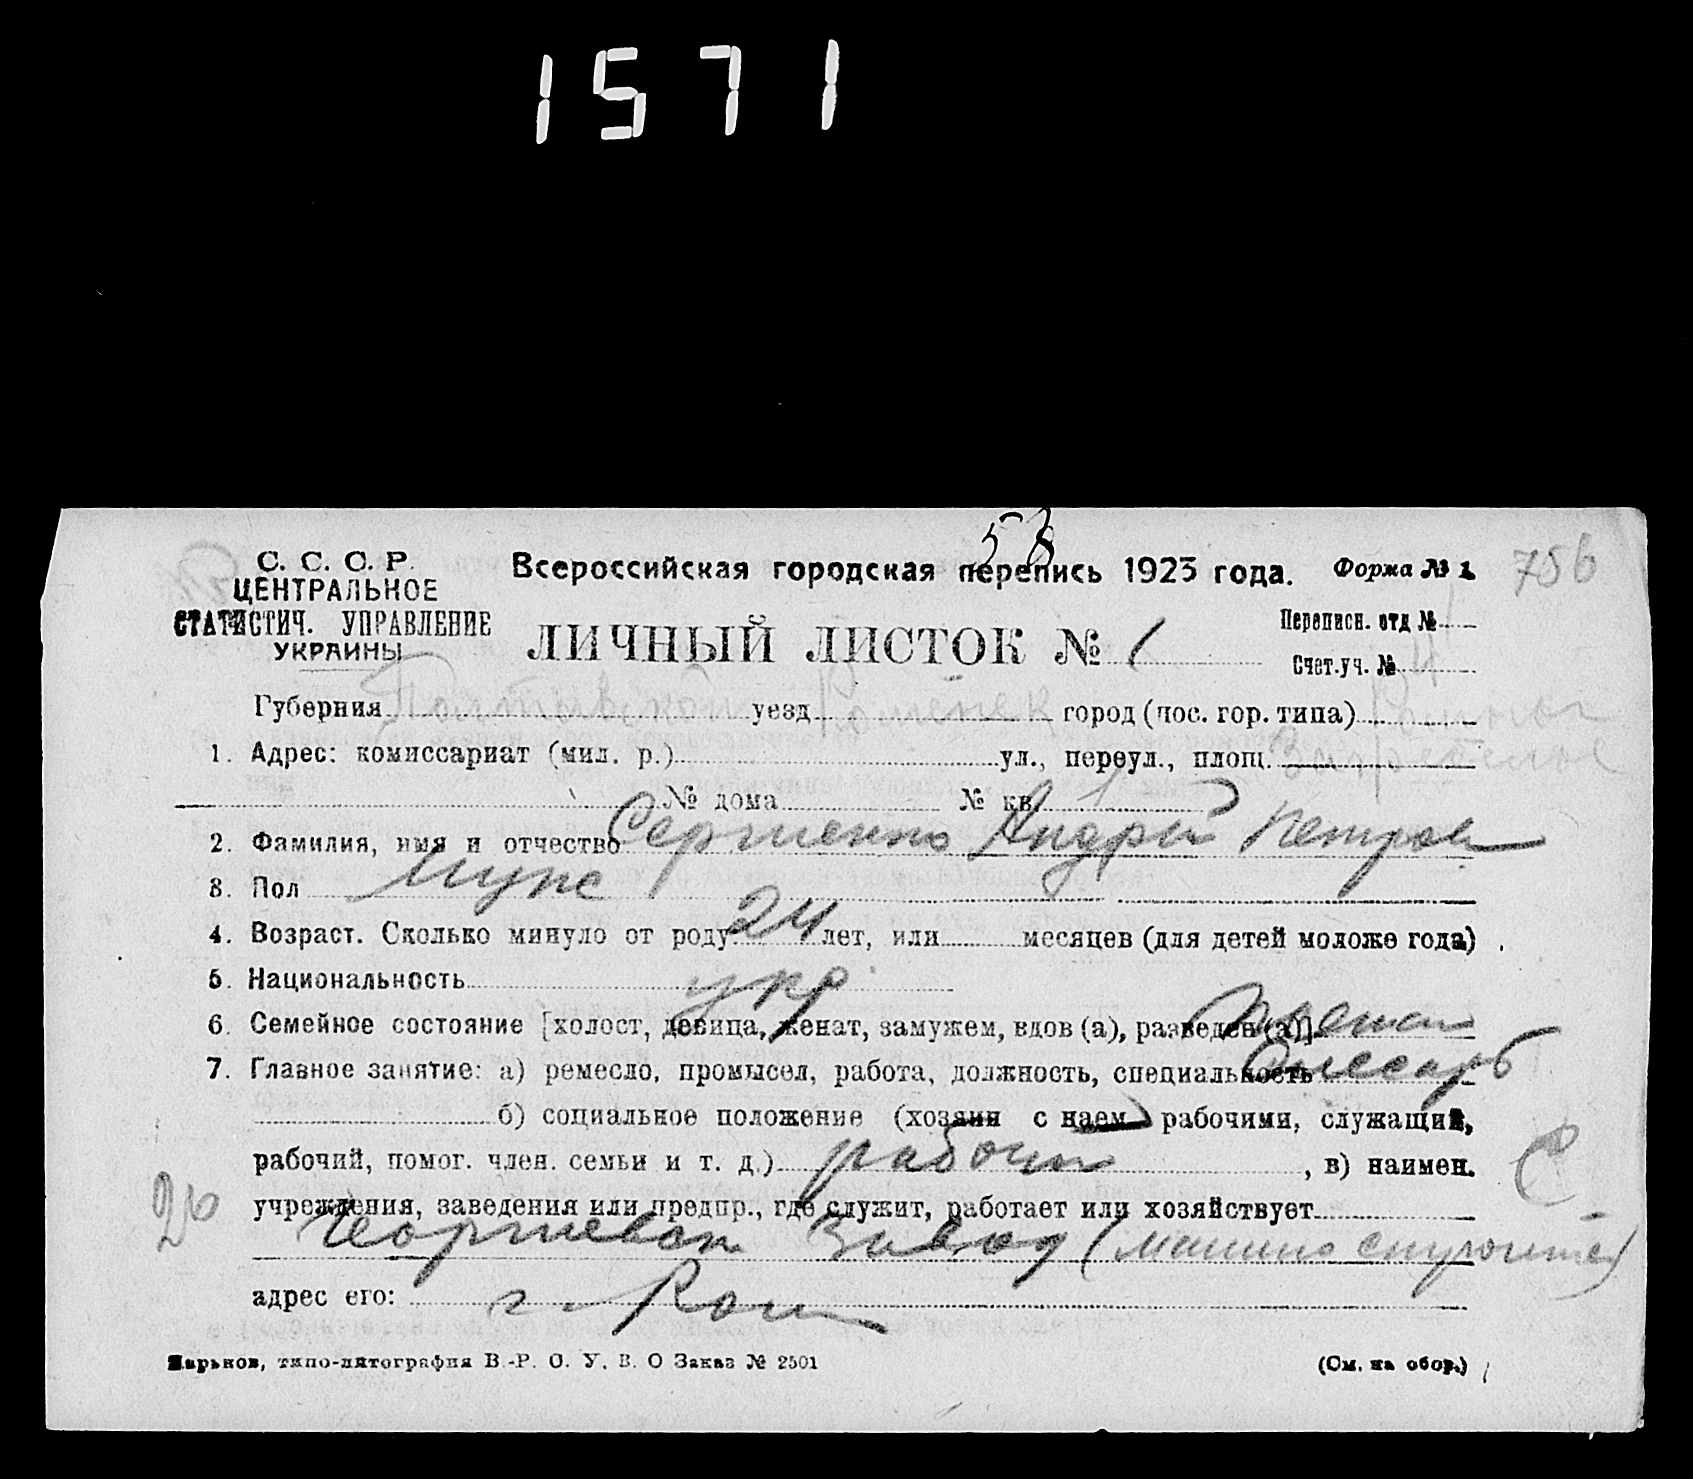 1571
58
С. С. С. Р.
ЦЕНТРАЛЬНОЕ
СТАТИСТИЧ. УПРАВЛЕНИЕ
УКРАИНЫ
Всероссийская городская перепись 1923 года.
Форма № 1
756
ЛИЧНЫЙ ЛИСТОК № 1
Переписн. отд №
Счет.уч. № 4
Губерния Полтавской уезд Роменск город (пос. гор. типа) Ромны
1. Адрес: комиссариат (мил. р.) ул., переул., площ.
№ дома № кв.
2. Фамилия, имя и отчество Сергиенко Андрей Петров
3. Пол Мужс
4. Возраст. Сколько минуло от роду 24 лет, или месяцев (для детей моложе года)
5. Национальность укр
6. Семейное состояние [холост, девица, женат, замужем, вдов (а), разведен (а)]
7. Главное занятие: а) ремесло, промысел, работа, должность, специальность Слесарь
б) социальное положение (хозяин с наем. рабочими, служащий,
рабочий, помог. член. семьи и т. д.) рабочий, в) наимен.
учреждения, заведения или предпр., где служит, работает или хозяйствует
26
завод
адрес его: г. Ром
Харьков, типо-литография В.-Р. О. У. В. О Заказ № 2501
(См. на обор.)